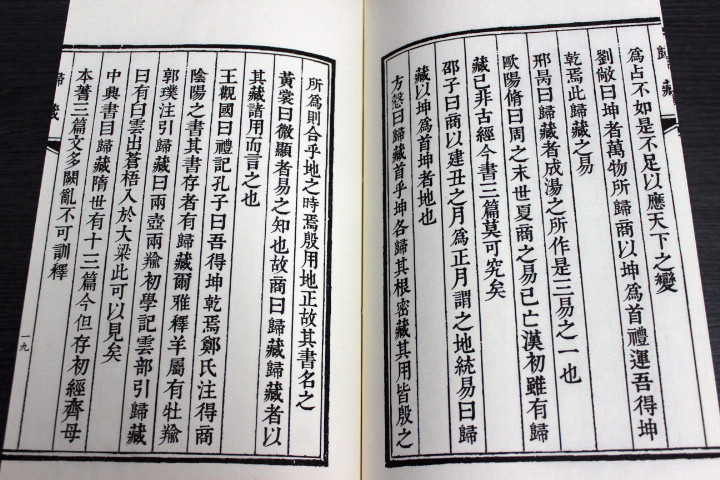 歸藏
為占不如是不足以應天下之變
劉敞曰坤者萬物所歸商以坤為首禮運吾得坤
乾焉此歸藏之易
邢昺曰歸藏者成湯之所作是三易之一也
歐陽脩曰周之末世夏商之易已亡漢初雖有歸
藏已非古經今書三篇莫可究矣
邵子曰商以建丑之月為正月謂之地統易曰歸
藏以坤為首坤者地也
方愨曰歸藏首乎坤各歸其根密藏其用皆殷之
所為則合乎地之時焉殷用地正故其書名之
黃裳曰微顯者易之知也故商曰歸藏歸藏者以
其藏諸用而言之也
王觀國曰禮記孔子曰吾得坤乾焉鄭氏注得商
陰陽之書其書存者有歸藏爾雅釋羊屬有牡羭
郭璞注引歸藏曰兩壺兩羭初學記雲部引歸藏
曰有白雲出蒼梧入於大梁此可以見矣
中興書目歸藏隋世有十三篇今但存初經齊母
本蓍三篇文多闕亂不可訓釋
歸藏
一九